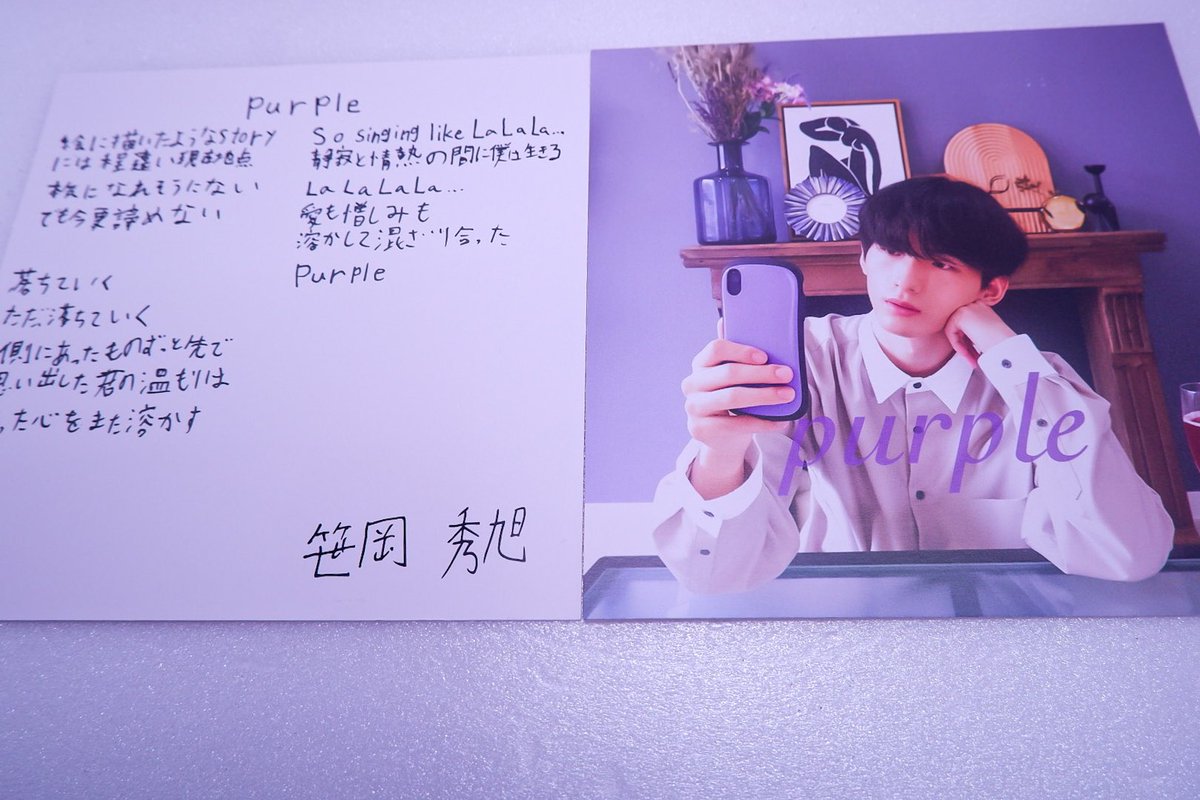 purple
絵に描いたようなstory
には程遠い現在地点
本気になれそうにない
でも今更諦めない
落ちていく
ただ落ちていく
側にあったものずっと先で
思い出した君の温もりは
た心をまた溶かす
So singing like LaLaLa...
静寂と情熱の間に僕は生きる
LaLaLaLa...
愛も憎しみも
溶かして混ざり合った
Purple
笹岡 秀旭
purple